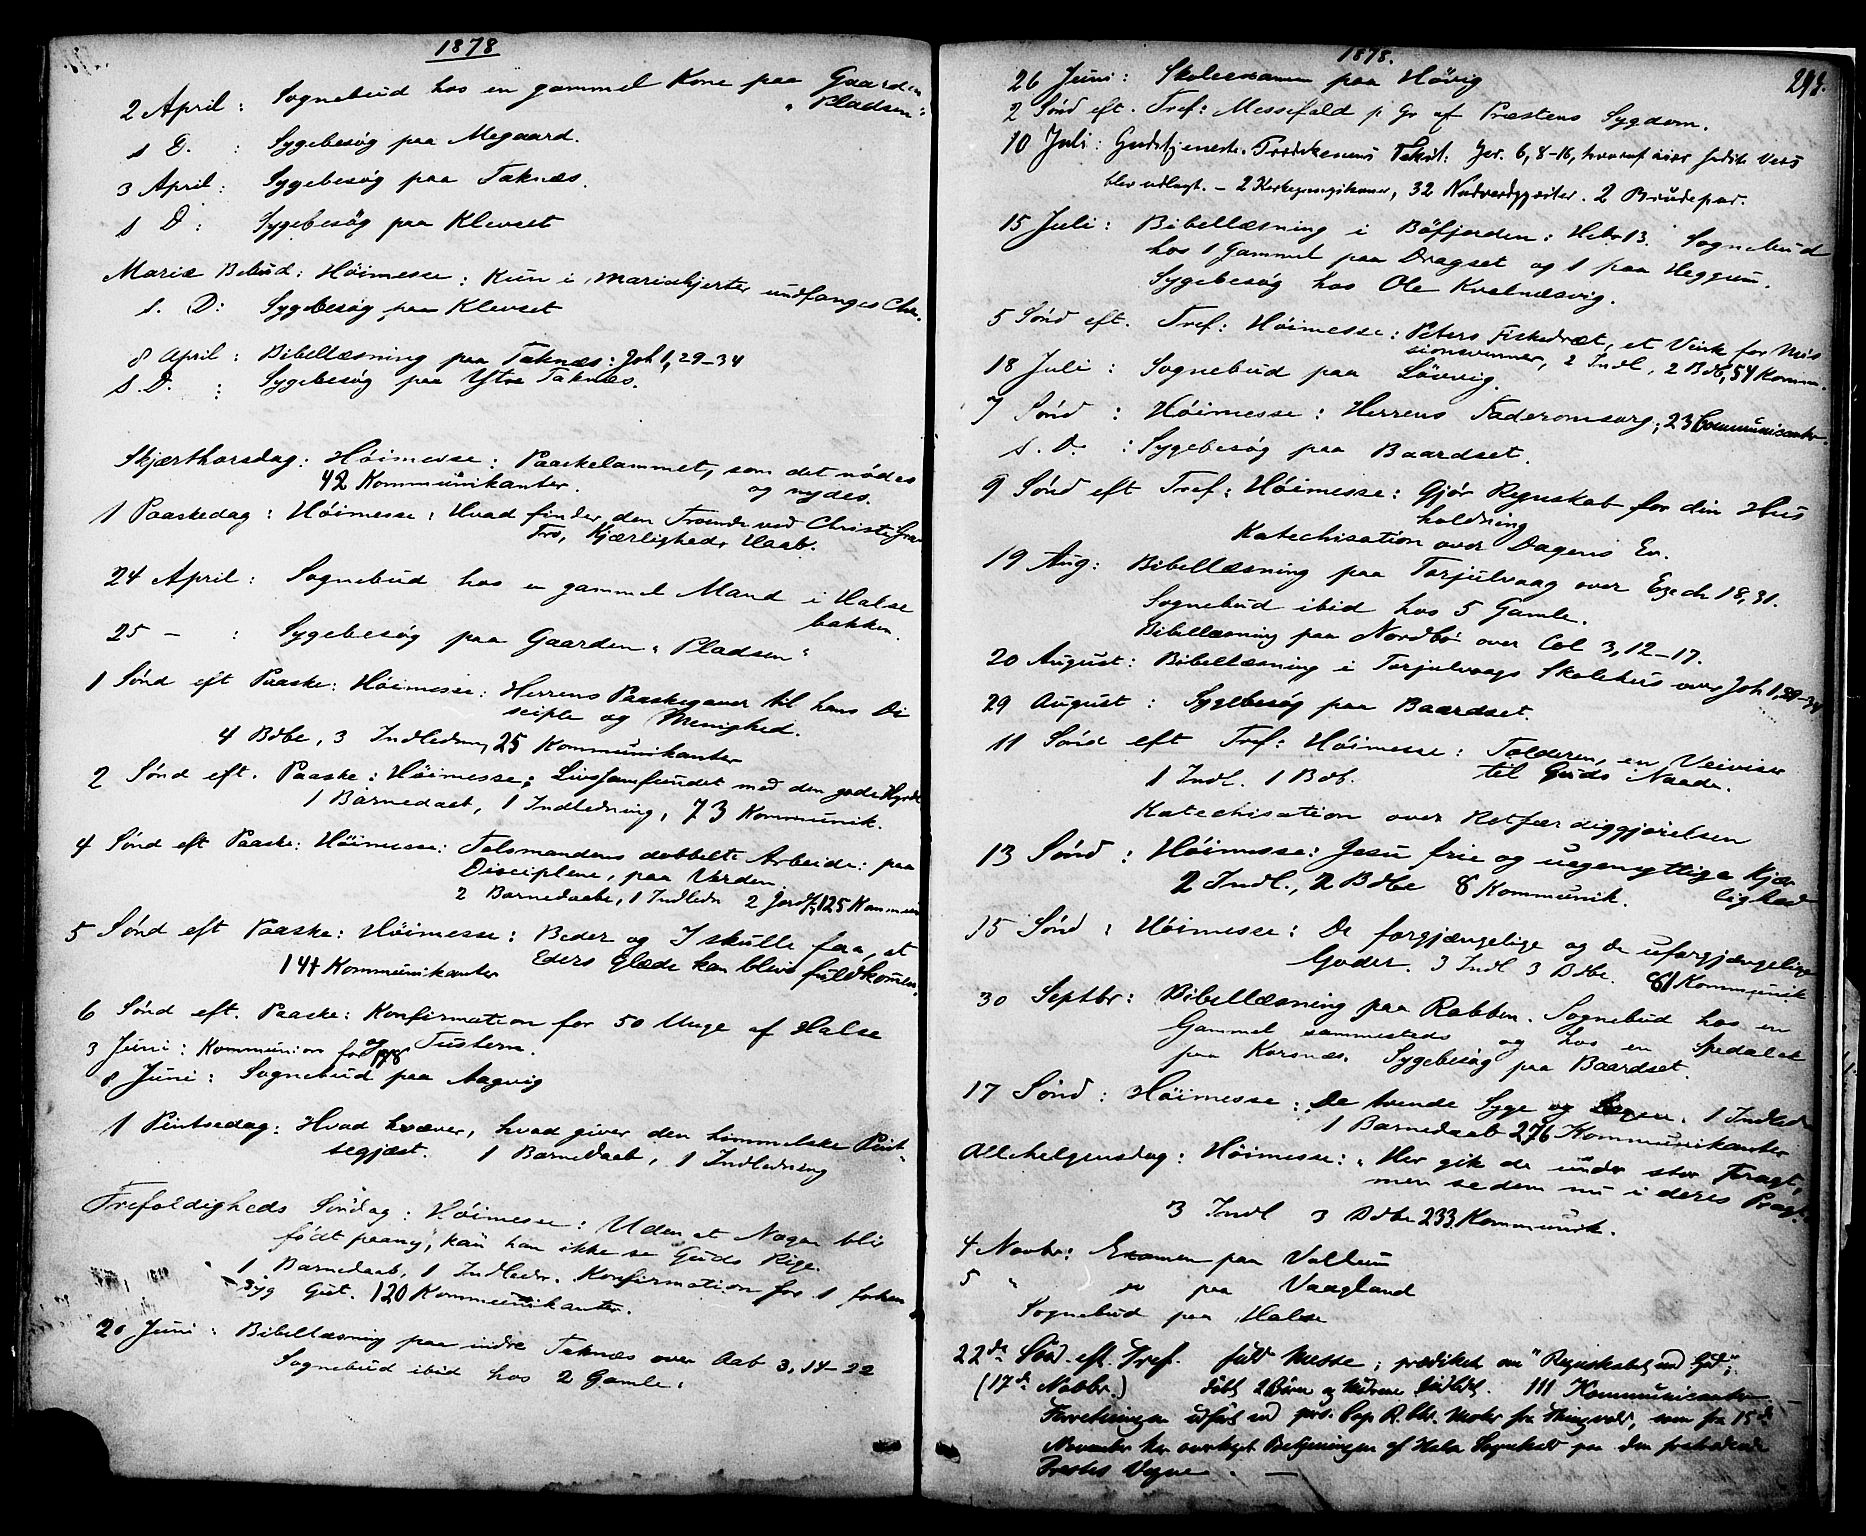 1878
2 April : Sognebud hos en gammel Kone paa Gaarden
"Pladsen":
s D. : Sygebesøg paa Megaard.
3 April : Sygebesøg paa Taknæs.
s D : Sygebesøg paa Klevset
Mariæ Bebud : Høimesse : Kun i Mariahjerter undfanges Chr.
s. D : Sygebesøg paa Klevset
8 April : Bibellæsning paa Taknæs : Joh 1, 29-34
s. D. : Sygebesøg paa Ytre Taknæs.
Skjærthorsdag : Høimesse : Paaskelammet, som det nødes
og nydes.
42 Kommunikanter.
1 Paaskedag : Høimesse : Hvad finder den Troende ved Christi Grav
Tro, Kjærlighed, Haab.
24 April : Sognebud hos en gammel Mand i Halse
bakken.
25 - : Sygebesøg paa Gaarden "Pladsen"
1 Sønd eft Paaske : Høimesse : Herrens Paaskegaver til hans Di
sciple og Menighed.
4 Bdbe, 3 Indledn, 25 Kommunikanter
2 Sønd eft. Paaske : Høimesse : Livssamfundet med den gode Hyrde
1 Barnedaab, 1 Indledning, 73 Kommunik.
4 Sønd eft Paaske : Høimesse : Talsmandens dobbelte Arbeide : paa
Disciplene, paa Verden
2 Barnedaabe, 1 Indledn 2 Jordf, 125 Kommun
5 Sønd eft Paaske : Høimesse : Beder og I skulle faa, at
Eders Glæde kan blive fuldkommen.
144 Kommunikanter
6 Sønd eft. Paaske : Konfirmation for 50 Unge af Halse
og Tustern.
3 Juni : Kommunion for
8 Juni : Sognebud paa Aagvig
1 Pintsedag : Hvad kræver, hvad giver den himmelske Pint-
segjæst. 1 Barnedaab, 1 Indledning
Trefoldigheds Søndag : Høimesse : Uden at Nogen bliv
født paany, kan han ikke se Guds Rige.
1 Barnedaab, 1 Indledn. Konfirmation for 1
syg Gut. 120 Kommunikanter.
20 Juni : Bibellæsning paa indre Taknæs over Aab 3, 14-22
Sognebud ibid hos 2 Gamle.
1878.
293.
26 Juni : Skoleexamen paa Høvig
2 Sønd eft. Tref : Messefald p Gr af Præstens Sygdom.
10 Juli : Gudstjeneste. Prædikenens Text: Jer. 6, 8-16, hvoraf især sidste Vers
blev udlagt. - 2 Kirkegangskoner, 32 Nadvergjæster. 2 Brudepar.
15 Juli : Bibellæsning i Bøfjorden : Hebr 13. Sognebud
hos 1 Gammel paa Dragset og 1 paa Heggem.
Sygebesøg hos Ole Kvalnæsvig.
5 Sønd eft. Tref : Høimesse : Peters Fiskedræt, et Vink for Mis
sionsvenner, 2 Indl, 2 Bdb, 54 Komm.
18 Juli : Sognebud paa Løvvig.
7 Sønd : Høimesse : Herrens Faderomsorg, 23 Communicanter
s. D. : Sygebesøg paa Baardset.
9 Sønd eft Tref : Høimesse : Gjør Regnskab for din Hus
holdning
Katechisation over Dagens Ev.
19 Aug : Bibellæsning paa Torjulvaag over Ezech 18, 31.
Sognebud ibid hos 5 Gamle.
Bibellæsning paa Nordbø over Col 3, 12-17.
20 August : Bibellæsning i Torjulvaags Skolehus over Joh 1, 29-34
29 August : Sygebesøg paa Baardset.
11 Sønd eft Tref : Høimesse : Tolderen, en Veiviser
til Guds Naade.
1 Indl. 1 Bdb.
Katechisation over Retfærdiggjørelsen
13 Sønd : Høimesse : Jesu frie og uegennyttige Kjær
lighed
2 Indl., 2 Bdbe 8 Kommunik.
15 Sønd : Høimesse : De forgjængelige og de uforgjængelige
Goder. 3 Indl 3 Bdbe. 61 Kommunik
30 Septbr : Bibellæsning paa Rabben. Sognebud hos en
Gammel sammesteds og hos en Spedalsk
paa Korsnæs. Sygebesøg paa Baardset.
17 Sønd : Høimesse : De tvende Syge og Lægen. 1 Indledn
1 Barnedaab 276 Kommunikanter
Allehelgensdag : Høimesse : "Her gik de under stor Foragt,
men se dem nu i deres Pragt."
3 Indl 3 Bdbe 233 Kommunik.
4 Novbr : Examen paa Valsum
5 " do paa Vaagland
Sognebud paa Halse
22de Sønd. eft. Tref. fuld Messe ; prædiket om "Regnskabet med Gud";
(17de Novbr.) døbt 2 Børn og Mødrene indledt. 111 Kommunicanter
Forretningen udført ved pers. Cap. R. Chr. Mohr fra Thingvold, som fra 15de
November har overtaget Betjeningen af Halse Sognekald paa den fratrædende
Præstes Vegne. -